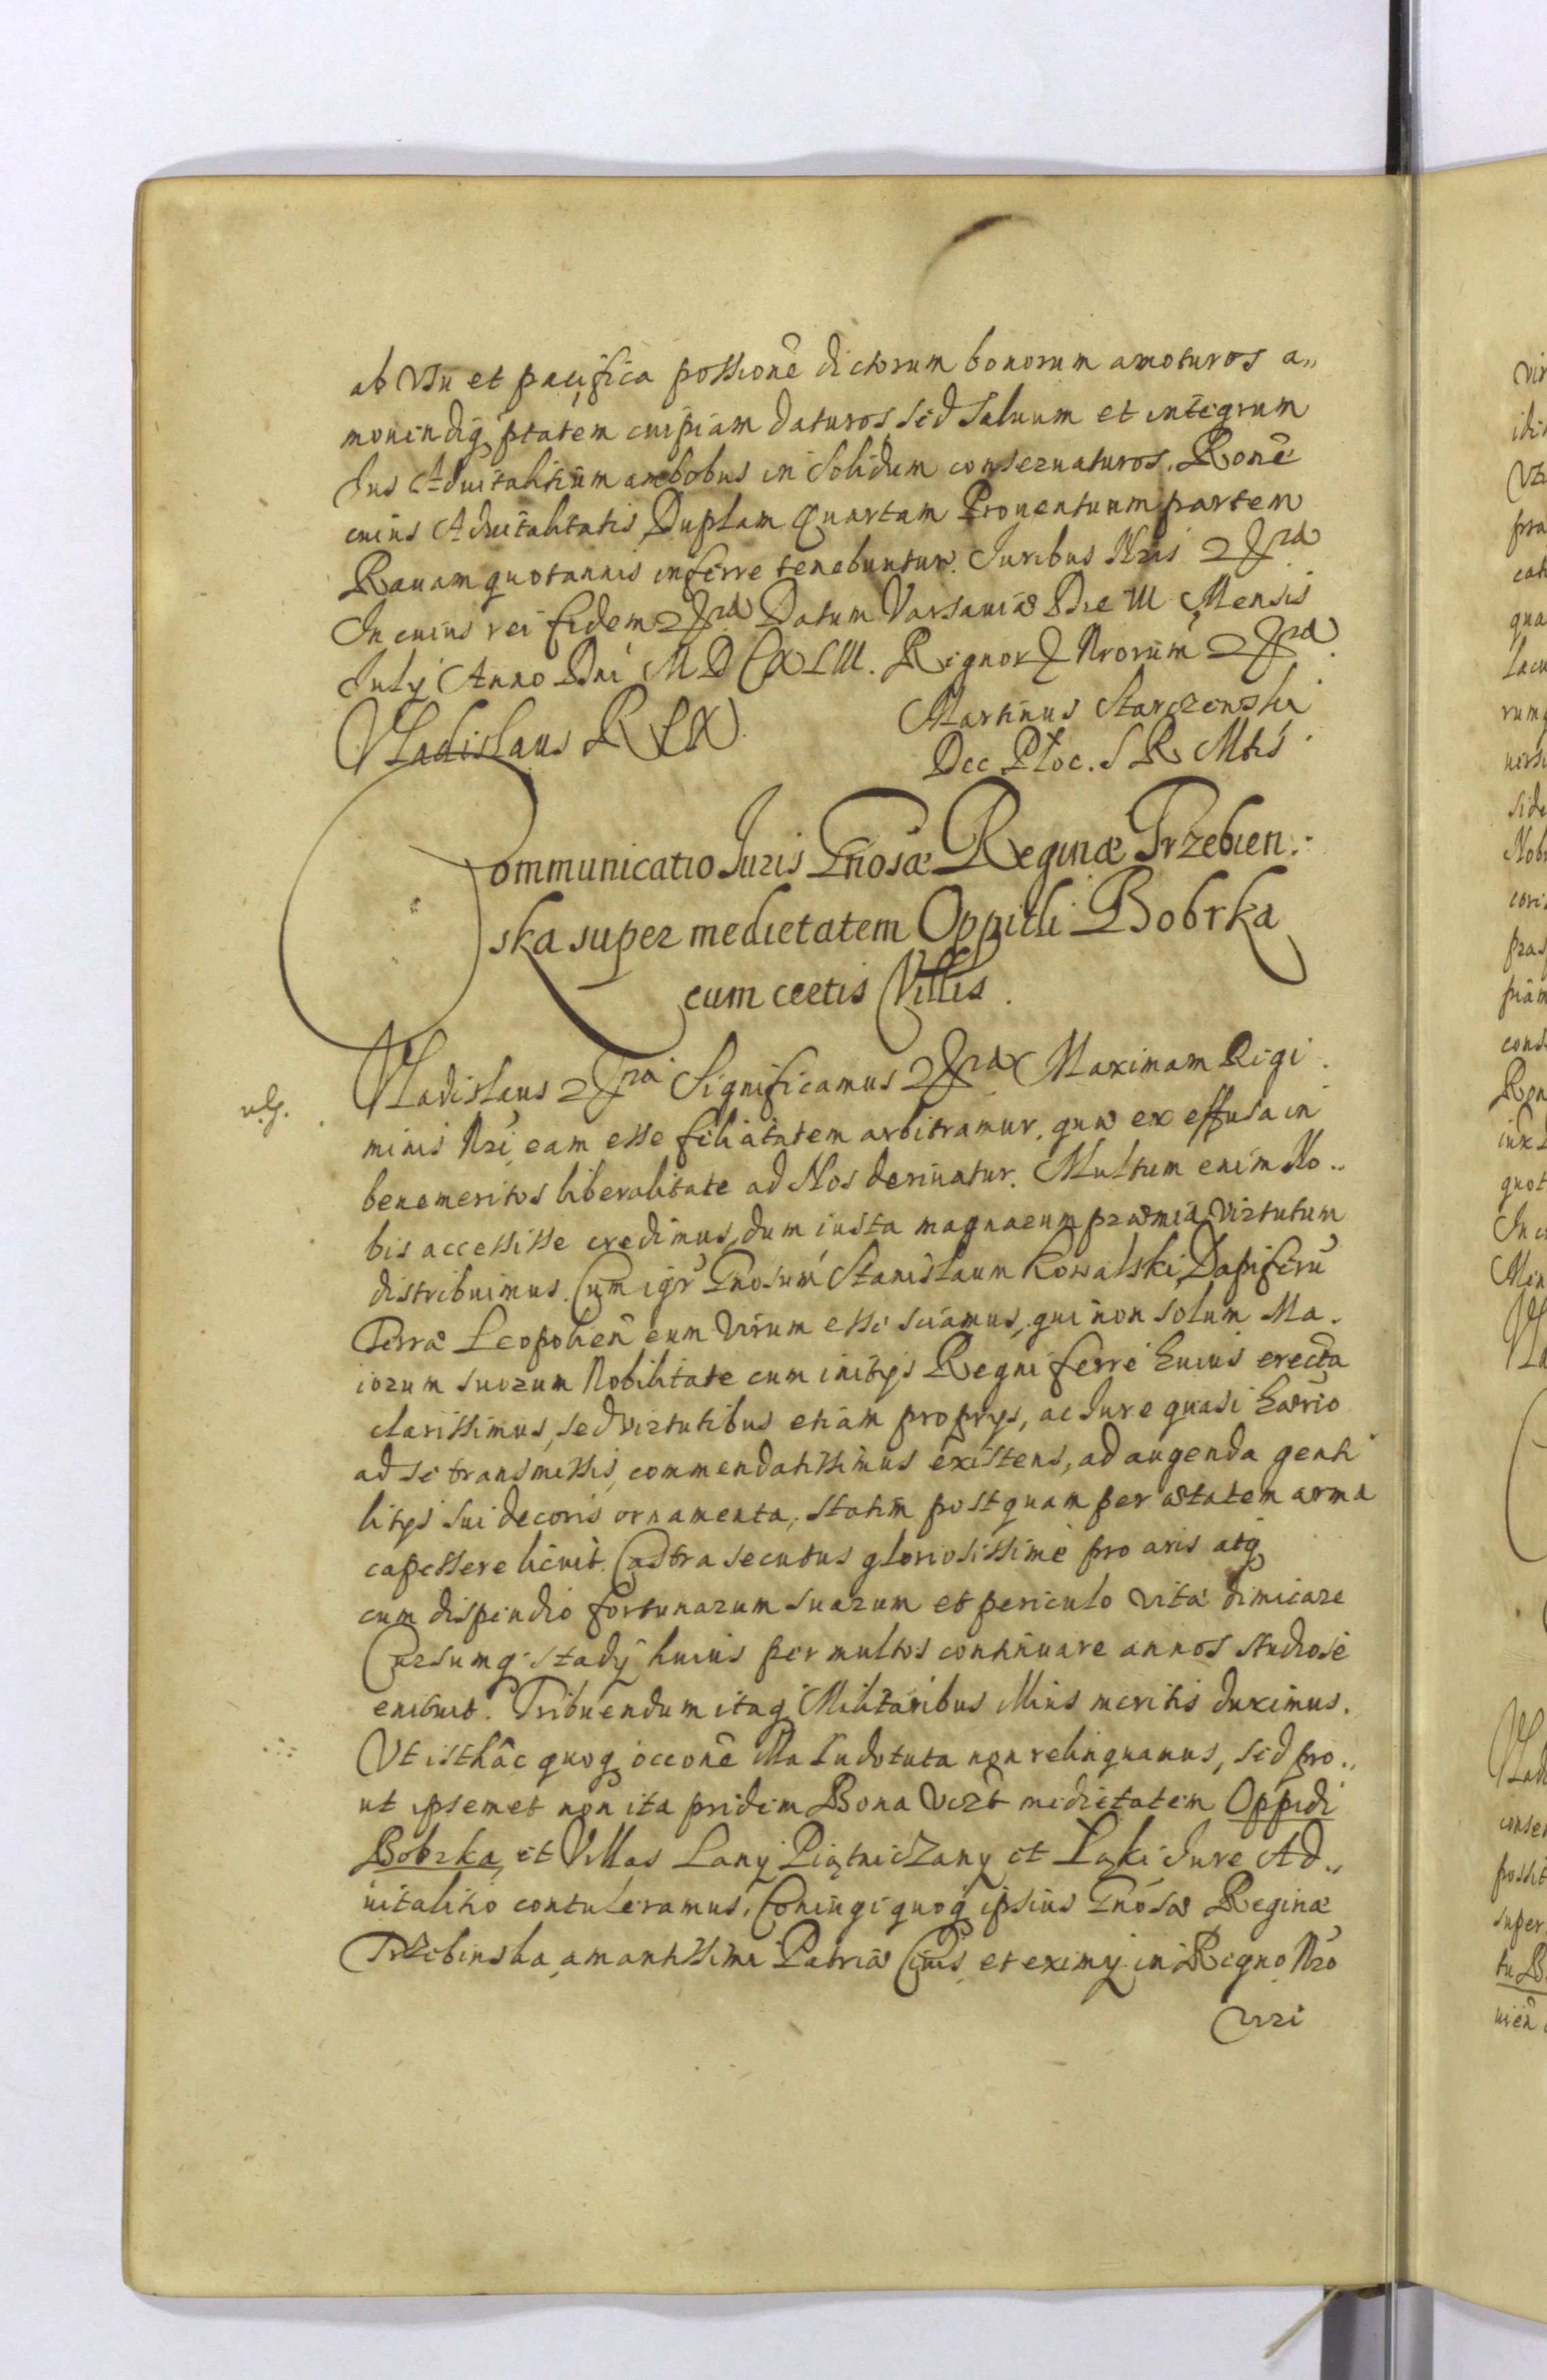 ab Vsu et pacifica possione dictorum bonorum amoturos a„
mouendiq ptatem cuipiam daturos sed saluum et integrum
Jus Aduitalitium ambobus in solidum conseruaturos. Rone
cuius Aduitalitatis Duplam Quartam Prouentuum partem
Rauam quotannis inferre tenebuntur. Juribus Nris
In cuius rei fidem Datum Varsauiæ Die III Mensis
July Anno Dni MDCXLIII. Regnor Nrorum
Vladislaus REX. Martinus Starczenski
Dec Ploc. S R Mtis
Communicatio Juris Gnosæ Reginæ Trzebien:
ska super medietatem Oppidi Bobrka
cum ceetis Villis.
Vladislaus Significamus Maximam Regi
minis Nri eam esse felicitatem arbitramur, quæ ex effusa in
benemeritos liberalitate ad Nos deriuatur. Multum enim No„
bis accessisse credimus, dum iusta magnarum præmia virtutum
distribuimus. Cum igr Gnosum Stanislaum Kowalski Dapiferu
Terræ Leopolien eum Virum esse sciamus, qui non solum Ma„
iorum suorum Nobilitate cum initys Regni ferre huius erecta
clarissimus, sed virtutibus etiam proprys, ac Jure quasi hærio
ad se transmissis, commendatissimus existens, ad augenda genti
litys sui decoris ornamenta, statim postquam per ætatem arma
capessere licuit. Castra secutus gloriosissime pro aris atq
cum dispendio fortunarum suarum et periculo vitæ dimicare
Cursumq stady huius per multos continuare annos studiose
enituit. Tribuendum itaq Militaribus illius meritis duximus.
Vt isthâc quoq occone illa indotata non relinquamus, sed pro„
ut ipsemet non ita pridem Bona vizt medietatem Oppidi
Bobrka, et Villas Lany Piątniczany et Łąki Jure Ad„
uitalitio contuleramus, Coniugi quoq ipsius Gnosæ Reginæ
Trzebinska, amantissimi Patriæ Ciuis, et eximy in Regno Nro
Viri